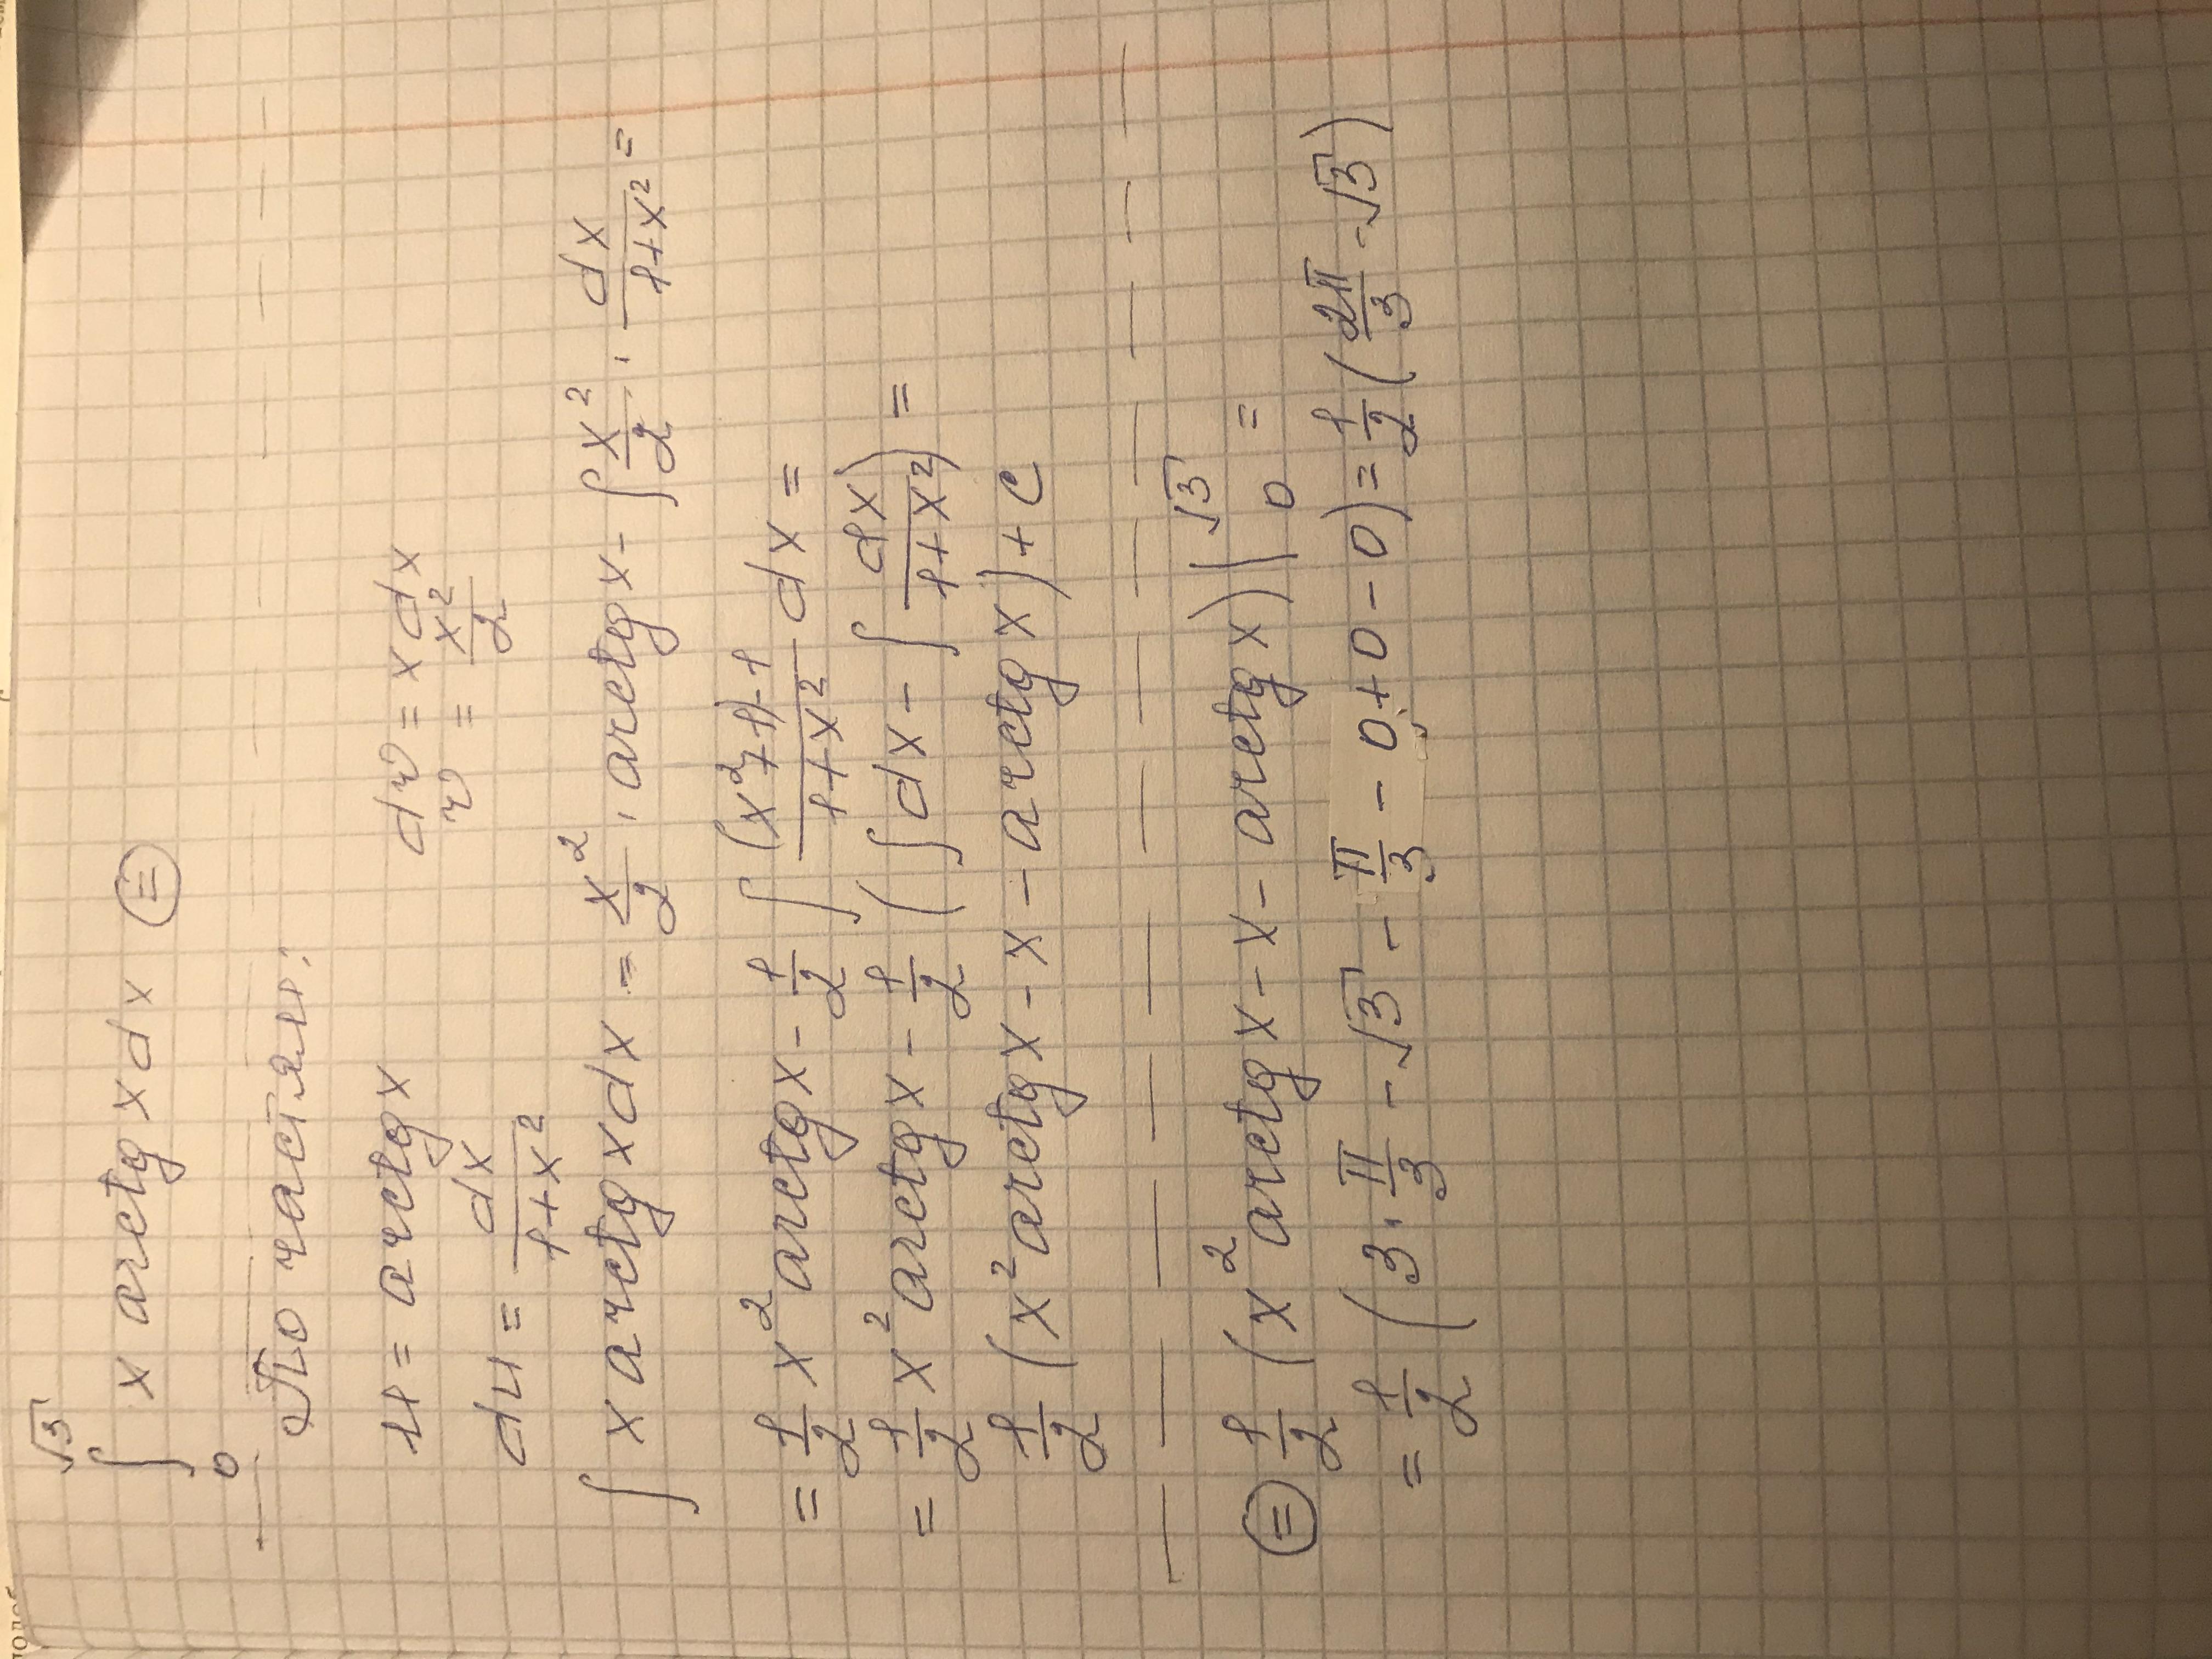 ∫₀^√3 x arctg x dx ⊜
По частям:
u = arctg x    dv = x dx
du = dx/(1+x²)    v = x²/2
∫ x arctg x dx = x²/2 · arctg x - ∫ x²/2 · dx/(1+x²) =
= 1/2 x² arctg x - 1/2 ∫ ((x²+1)-1)/(1+x²) dx =
= 1/2 x² arctg x - 1/2 (∫ dx - ∫ dx/(1+x²)) =
1/2 (x² arctg x - x - arctg x) + c
⊜ 1/2 (x² arctg x - x - arctg x) |₀^√3 =
= 1/2 (3 · π/3 - √3 - π/3 - 0 + 0 - 0) = 1/2 (2π/3 - √3)